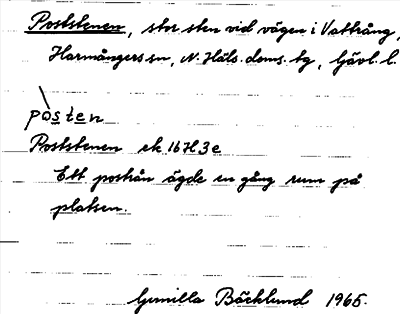 Poststenen, stor sten vid vägen i Vattrång,
Harmångers sn, N. Häls. doms. tg, Gävl. l.
pòsten
Poststenen ek 16H3e
Ett postrån ägde en gång rum på
platsen.
Gunilla Bäcklund 1965.